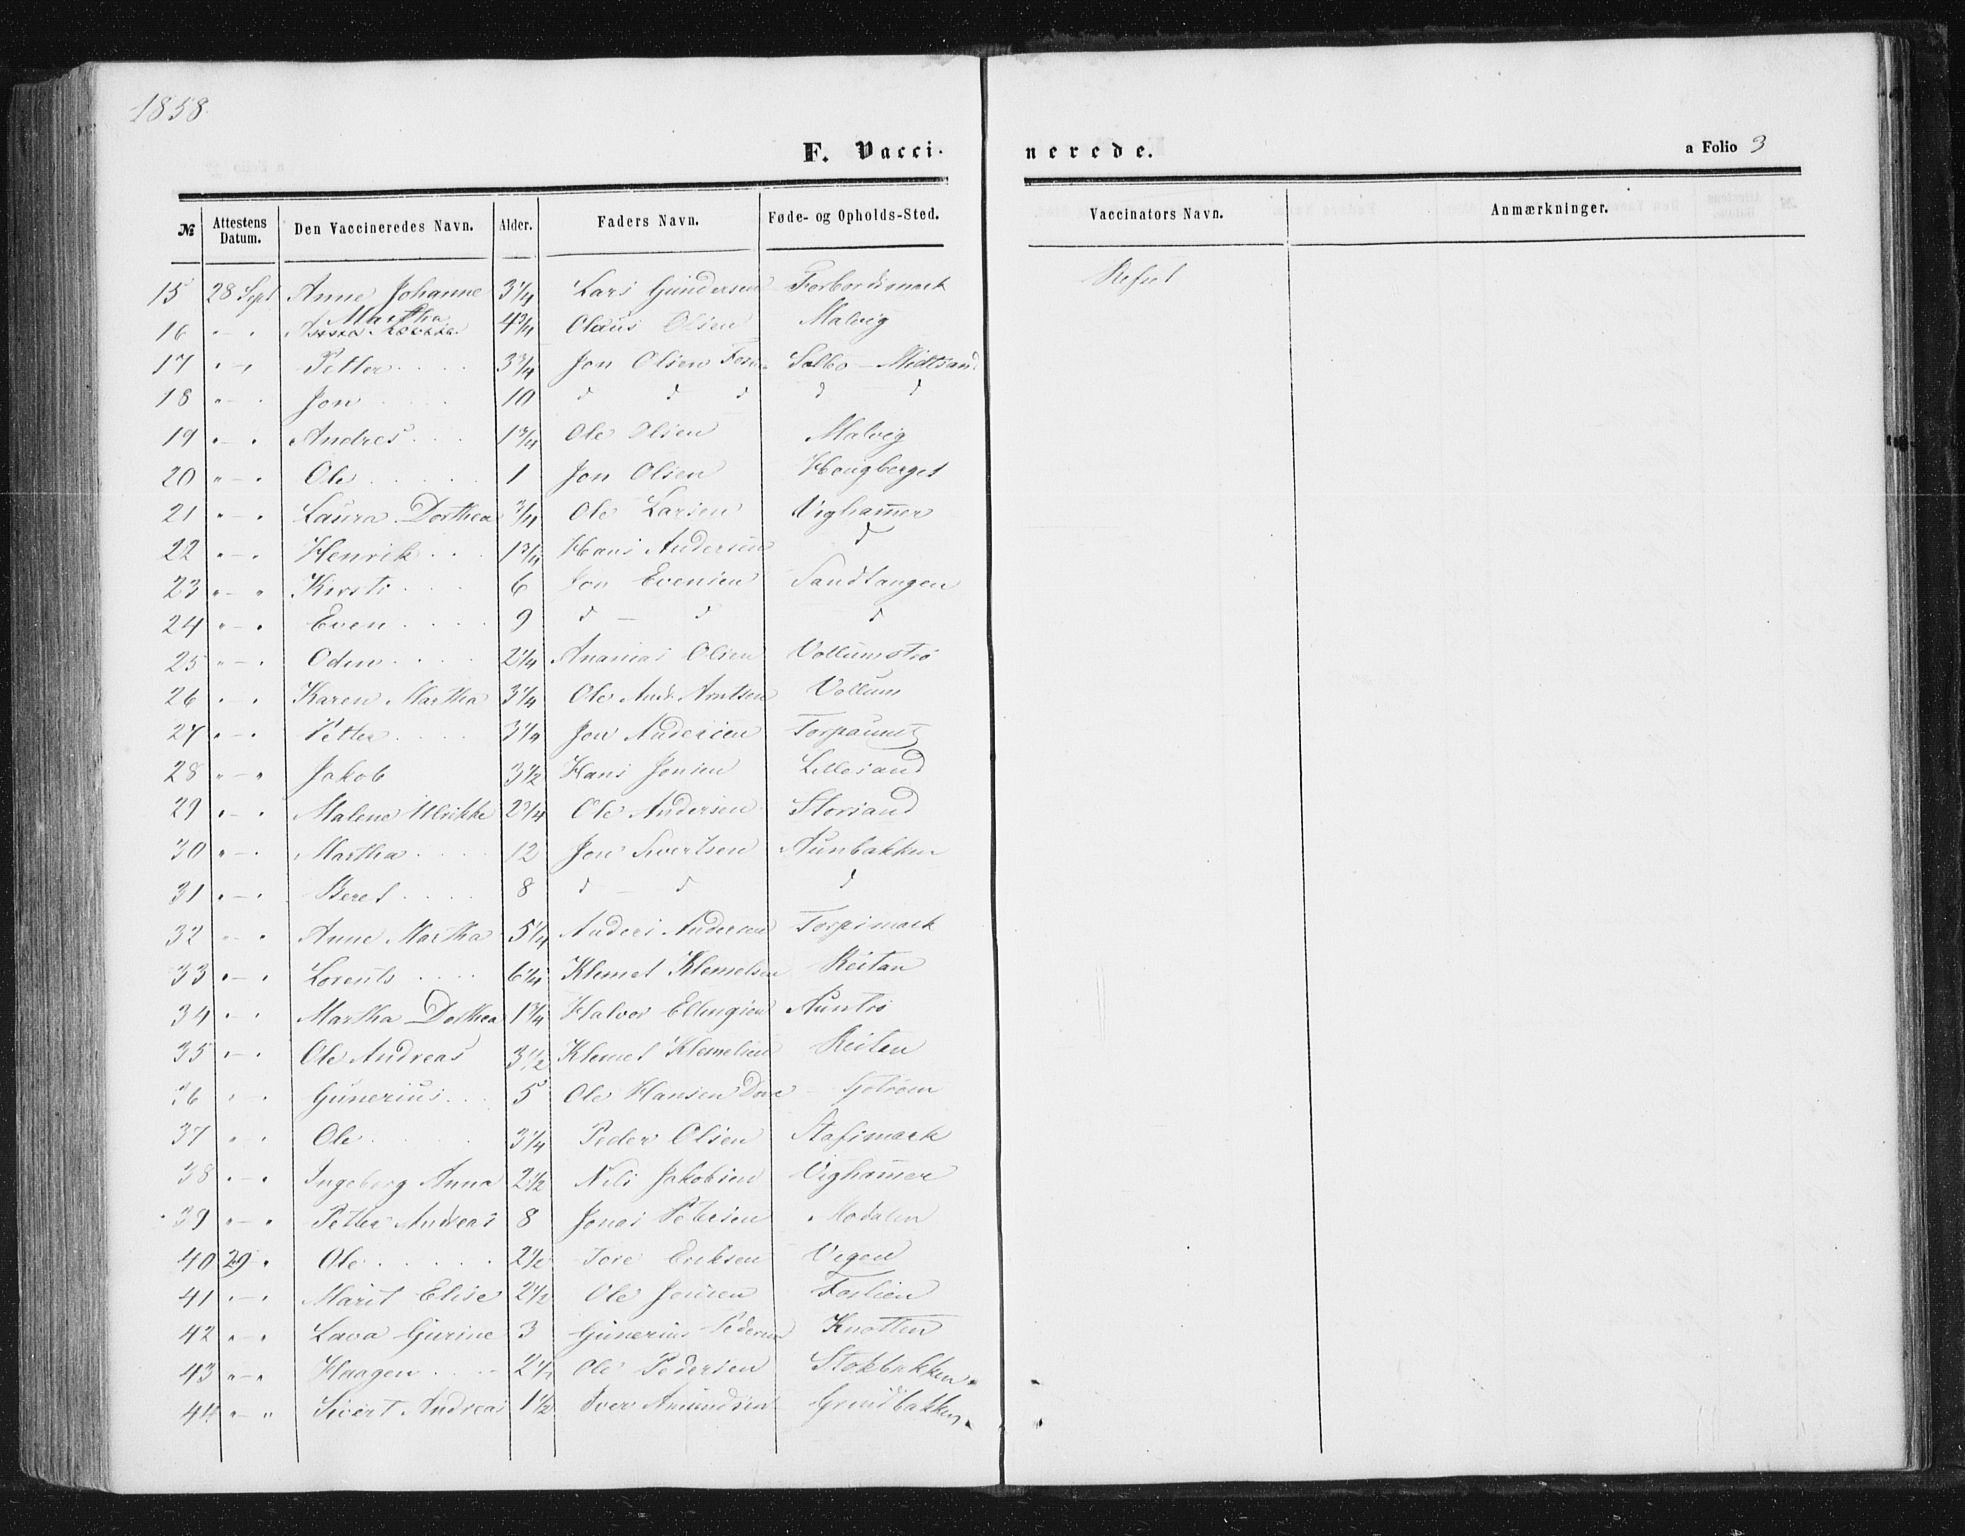 1858
F. Vaccinerede.
a Folio 3
№ Attestens Datum. Den Vaccineredes Navn. Alder. Faders Navn. Føde- og Opholds-Sted. Vaccinators Navn. Anmærkninger.
15 28 Sept Anne Johanne 3 1/4 Lars Gundersen Forbordsmark
16 " - " Martha 4 3/4 Olaus Olsen Malvig
17 " - " Petter 3 3/4 Jon Olsen Selbo - Midtsand
18 " - " Jon 10 d d d d d
19 " - " Andres 1 3/4 Ole Olsen Malvig
20 " - " Ole 1 Jon Olsen Hougberget
21 " - " Laura Dorthea 3/4 Ole Larsen Vighamer
22 " - " Henrik 1 3/4 Hans Andersen d
23 " - " Kirsti 6 Jon Evensen Sandtangen
24 " - " Even 9 d - d d
25 " - " Oden 2 1/4 Ananias Olsen Vollumstrø
26 " - " Karen Martha 3 1/4 Ole And. Arntsen Vollum
27 " - " Petter 3 1/4 Jon Andersen
28 " - " Jakob 3 1/2 Hans Jensen Lillesand
29 " - " Malene Ulrikke 2 1/4 Ole Andersen Storsand
30 " - " Martha 12 Jon Sivertsen Aunbakken
31 " - " Beret 8 d - d d
32 " - " Anne Martha 5 1/4 Anders Andersen Torpsmark
33 " - " Lorents 6 1/4 Klemet Klemetsen Reitan
34 " - " Martha Dorthea 1 3/4 Halvor Ellingsen Auntrø
35 " - " Ole Andreas 3 1/2 Klemet Klemetsen Reitan
36 " - " Gunerius 5 Ole Hansen
37 " - " Ole 3 1/4 Peder Olsen Stafsmark
38 " - " Ingeborg Anna 2 1/2 Nils Jakobsen Vighamer
39 " - " Petter Andreas 8 Jonas Petersen Modalen
40 29 " Ole 2 1/2 Tore Eriksen Vegen
41 " - " Marit Elise 2 1/2 Ole Jensen
42 " - " Lava Gurine 3 Gunerius Pedersen Knotten
43 " - " Haagen 2 1/2 Ole Pedersen Stokbakken
44 " - " Sivert Andreas 1 1/2 Iver Amundsen Grindbakken